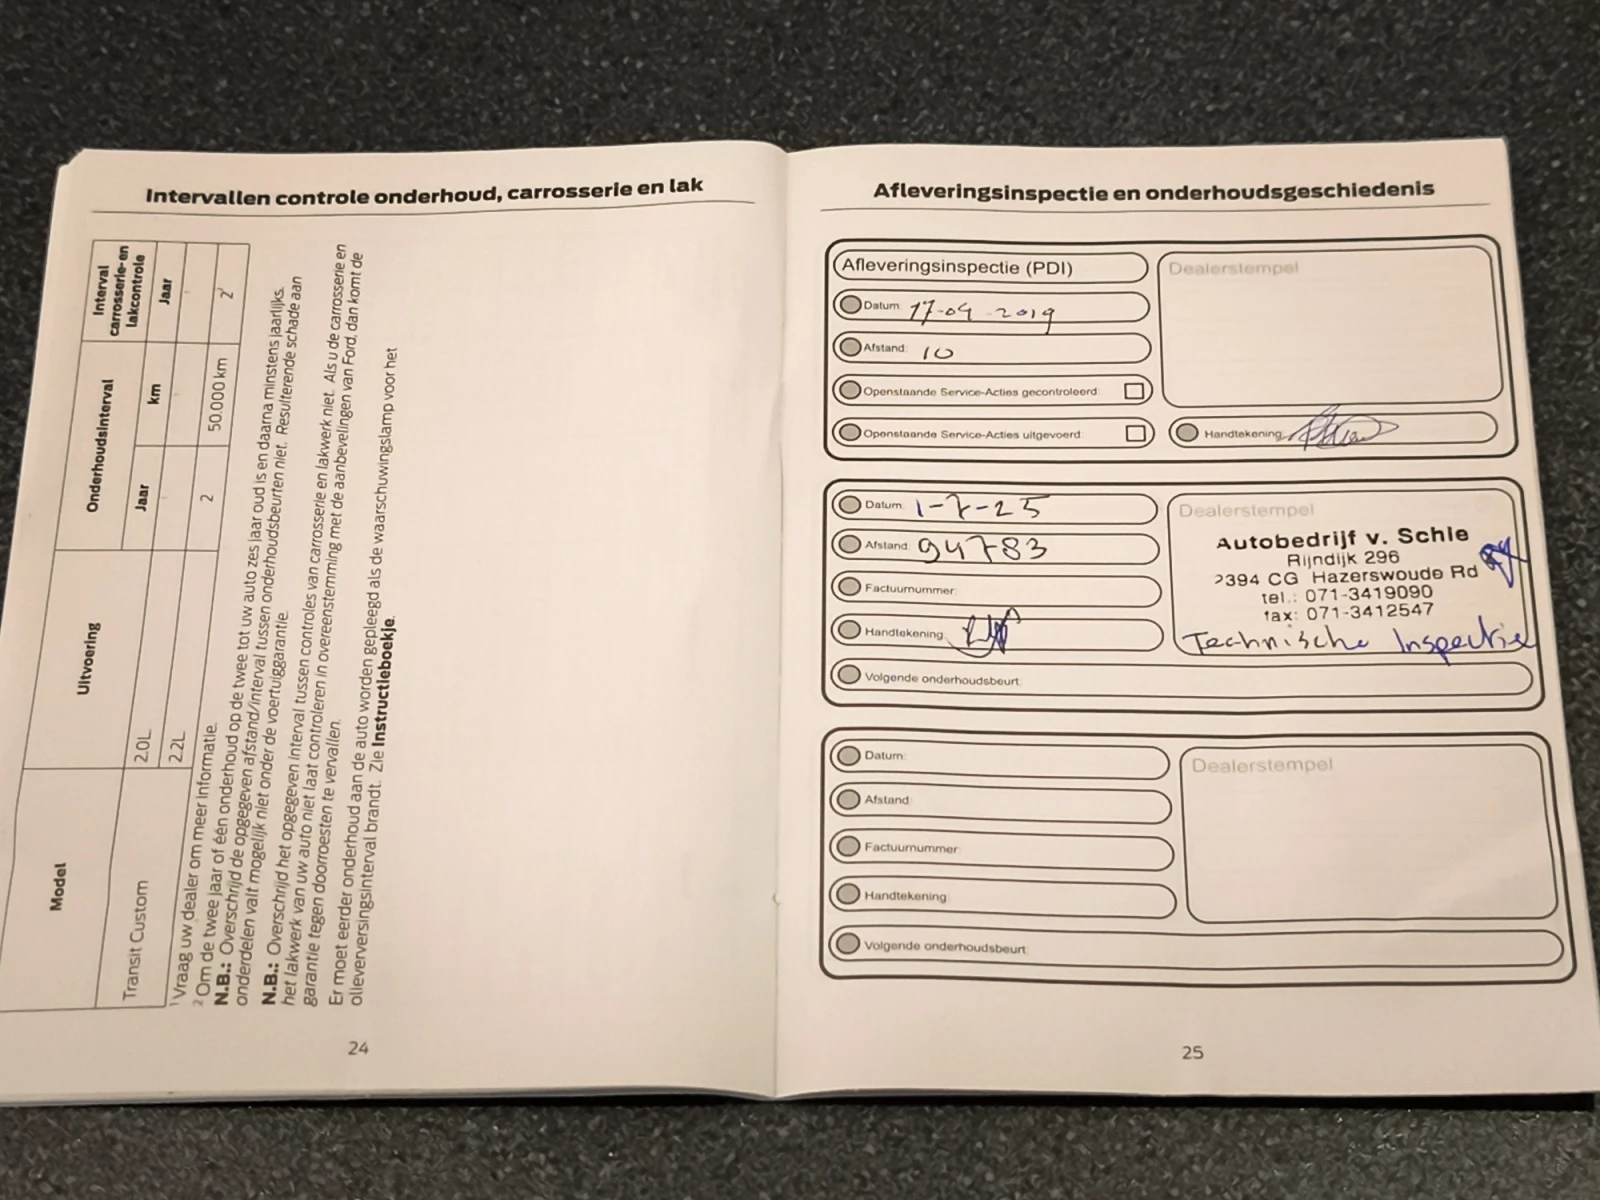 Intervallen controle onderhoud, carrosserie en lak
Model
Uitvoering
Onderhoudsinterval
Interval
carrosserie-en
lakcontrole
Jaar
km
Jaar
Transit Custom
2.0L
2.2L
2
50.000 km
2
1 Vraag uw dealer om meer informatie.
2 Om de twee jaar of één onderhoud op de twee tot uw auto zes jaar oud is en daarna minstens jaarlijks.
N.B.: Overschrijd de opgegeven afstand/interval tussen onderhoudsbeurten niet. Resulterende schade aan
onderdelen valt mogelijk niet onder de voertuiggarantie.
N.B.: Overschrijd het opgegeven interval tussen controles van carrosserie en lakwerk niet. Als u de carrosserie en
het lakwerk van uw auto niet laat controleren in overeenstemming met de aanbevelingen van Ford, dan komt de
garantie tegen doorroesten te vervallen.
Er moet eerder onderhoud aan de auto worden gepleegd als de waarschuwingslamp voor het
olieverversingsinterval brandt. Zie Instructieboekje.
24
Afleveringsinspectie en onderhoudsgeschiedenis
Afleveringsinspectie (PDI)
Dealerstempel
Datum: 17-09-2019
Afstand: 10
Openstaande Service-Acties gecontroleerd:
Openstaande Service-Acties uitgevoerd:
Handtekening:
Datum: 1-7-25
Dealerstempel
Afstand: 94783
Autobedrijf v. Schie
Rijndijk 296
2394 CG Hazerswoude Rd
tel.: 071-3419090
fax: 071-3412547
Factuurnummer:
Handtekening:
Technische Inspectie
Volgende onderhoudsbeurt:
Datum:
Dealerstempel
Afstand:
Factuurnummer:
Handtekening:
Volgende onderhoudsbeurt:
25